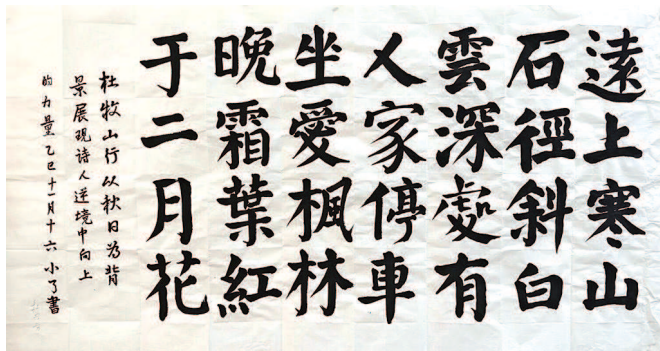 遠上寒山
石徑斜白
雲深處有
人家停車
坐愛楓林
晚霜葉紅
于二月花
杜牧山行以秋日为背
景展现诗人逆境中向上
的力量乙巳十一月十六小了書